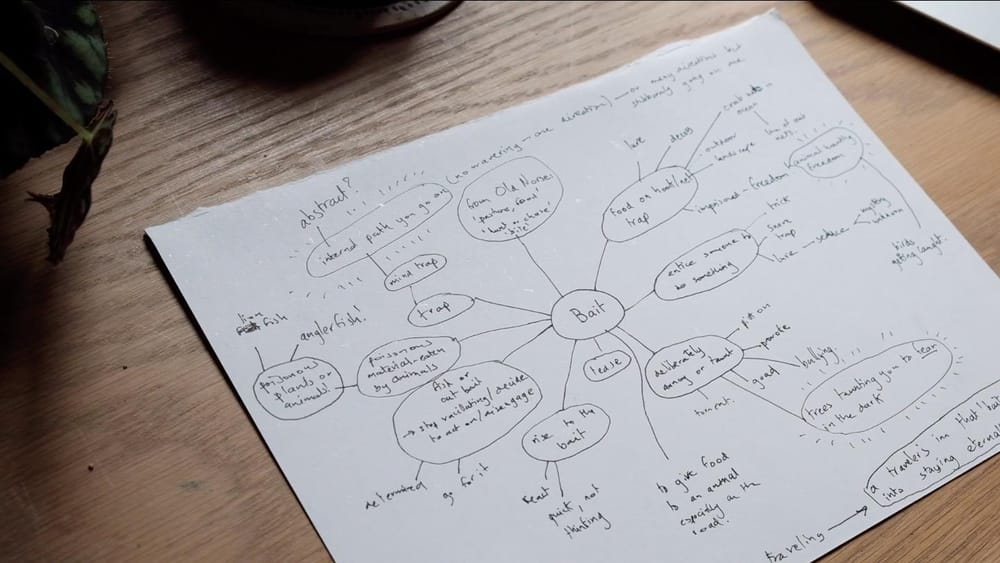 (no wavering - one direction) or many directions but
stubbornly going on one
abstract?
internal path you go on
mind trap
trap
from Old Norse:
'pasture, food'
'hunt or chase'
'bite'
Bait
food on hook/net
trap
lure
decoy
outdoor
landscape
crab nets
ocean
imprisoned - freedom
animal having
freedom
birds
getting caught.
entice someone to
do something
trick
snare
trap
lure
seduce
deliberately
annoy or taunt
goad
bullying
torment.
trees taunting you to lean
in the dark
tease
to give food
to an animal
especially on the
road.
rise to the
bait
react
quick, not
thinking
Fish or
cut bait
→ stop vacillating/decide
to act on/disengage
determined
go for it
poisonous
material eaten
by animals
poisonous
plants or
animals!
lion
fish
anglerfish!
traveling →
a travelers inn that 'bait
into staying eternal